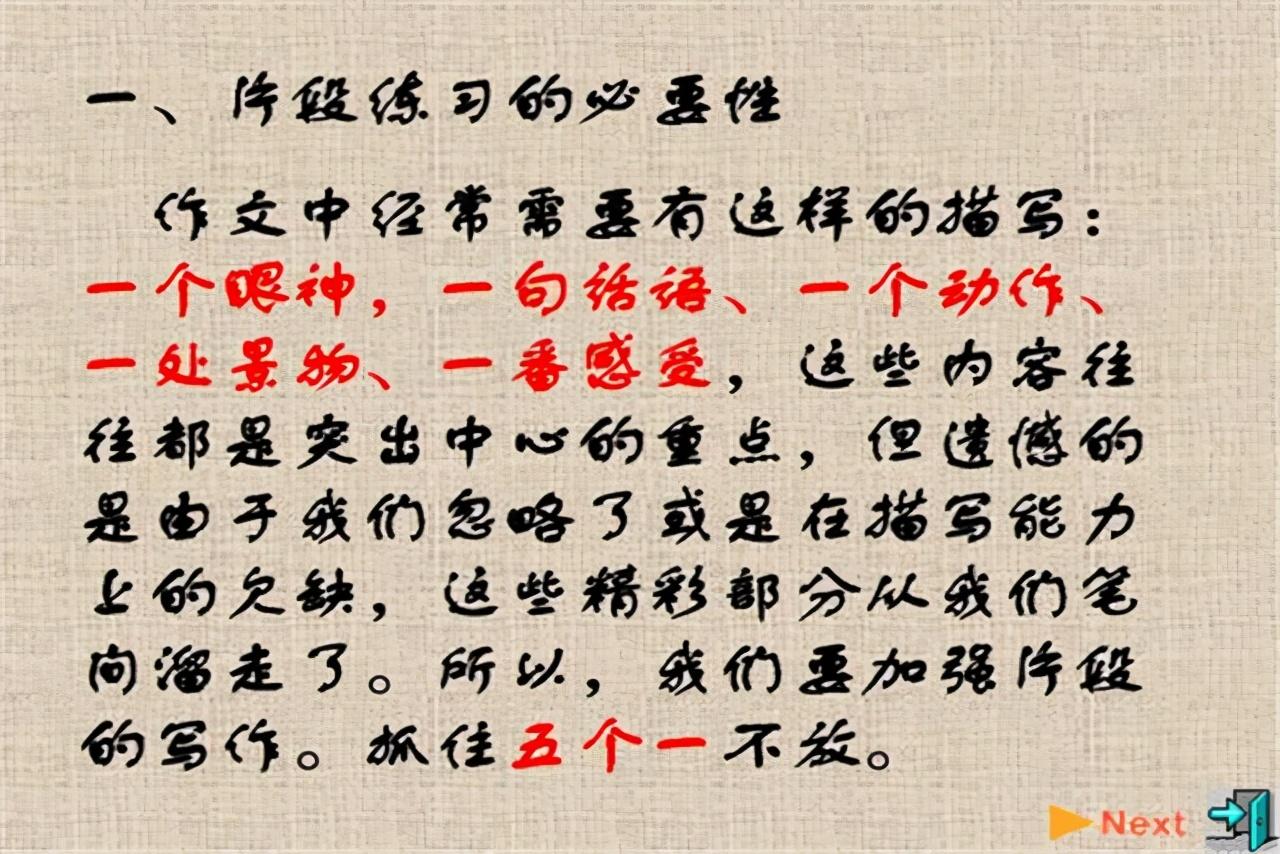 一、片段练习的必要性
作文中经常需要有这样的描写：
一个眼神，一句话语、一个动作、
一处景物、一番感受，这些内容往
往都是突出中心的重点，但遗憾的
是由于我们忽略了或是在描写能力
上的欠缺，这些精彩部分从我们笔
间溜走了。所以，我们要加强片段
的写作。抓住五个一不放。
Next